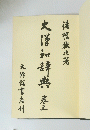 諸橋轍次著
大漢和辭典
卷三
大修館書店刊